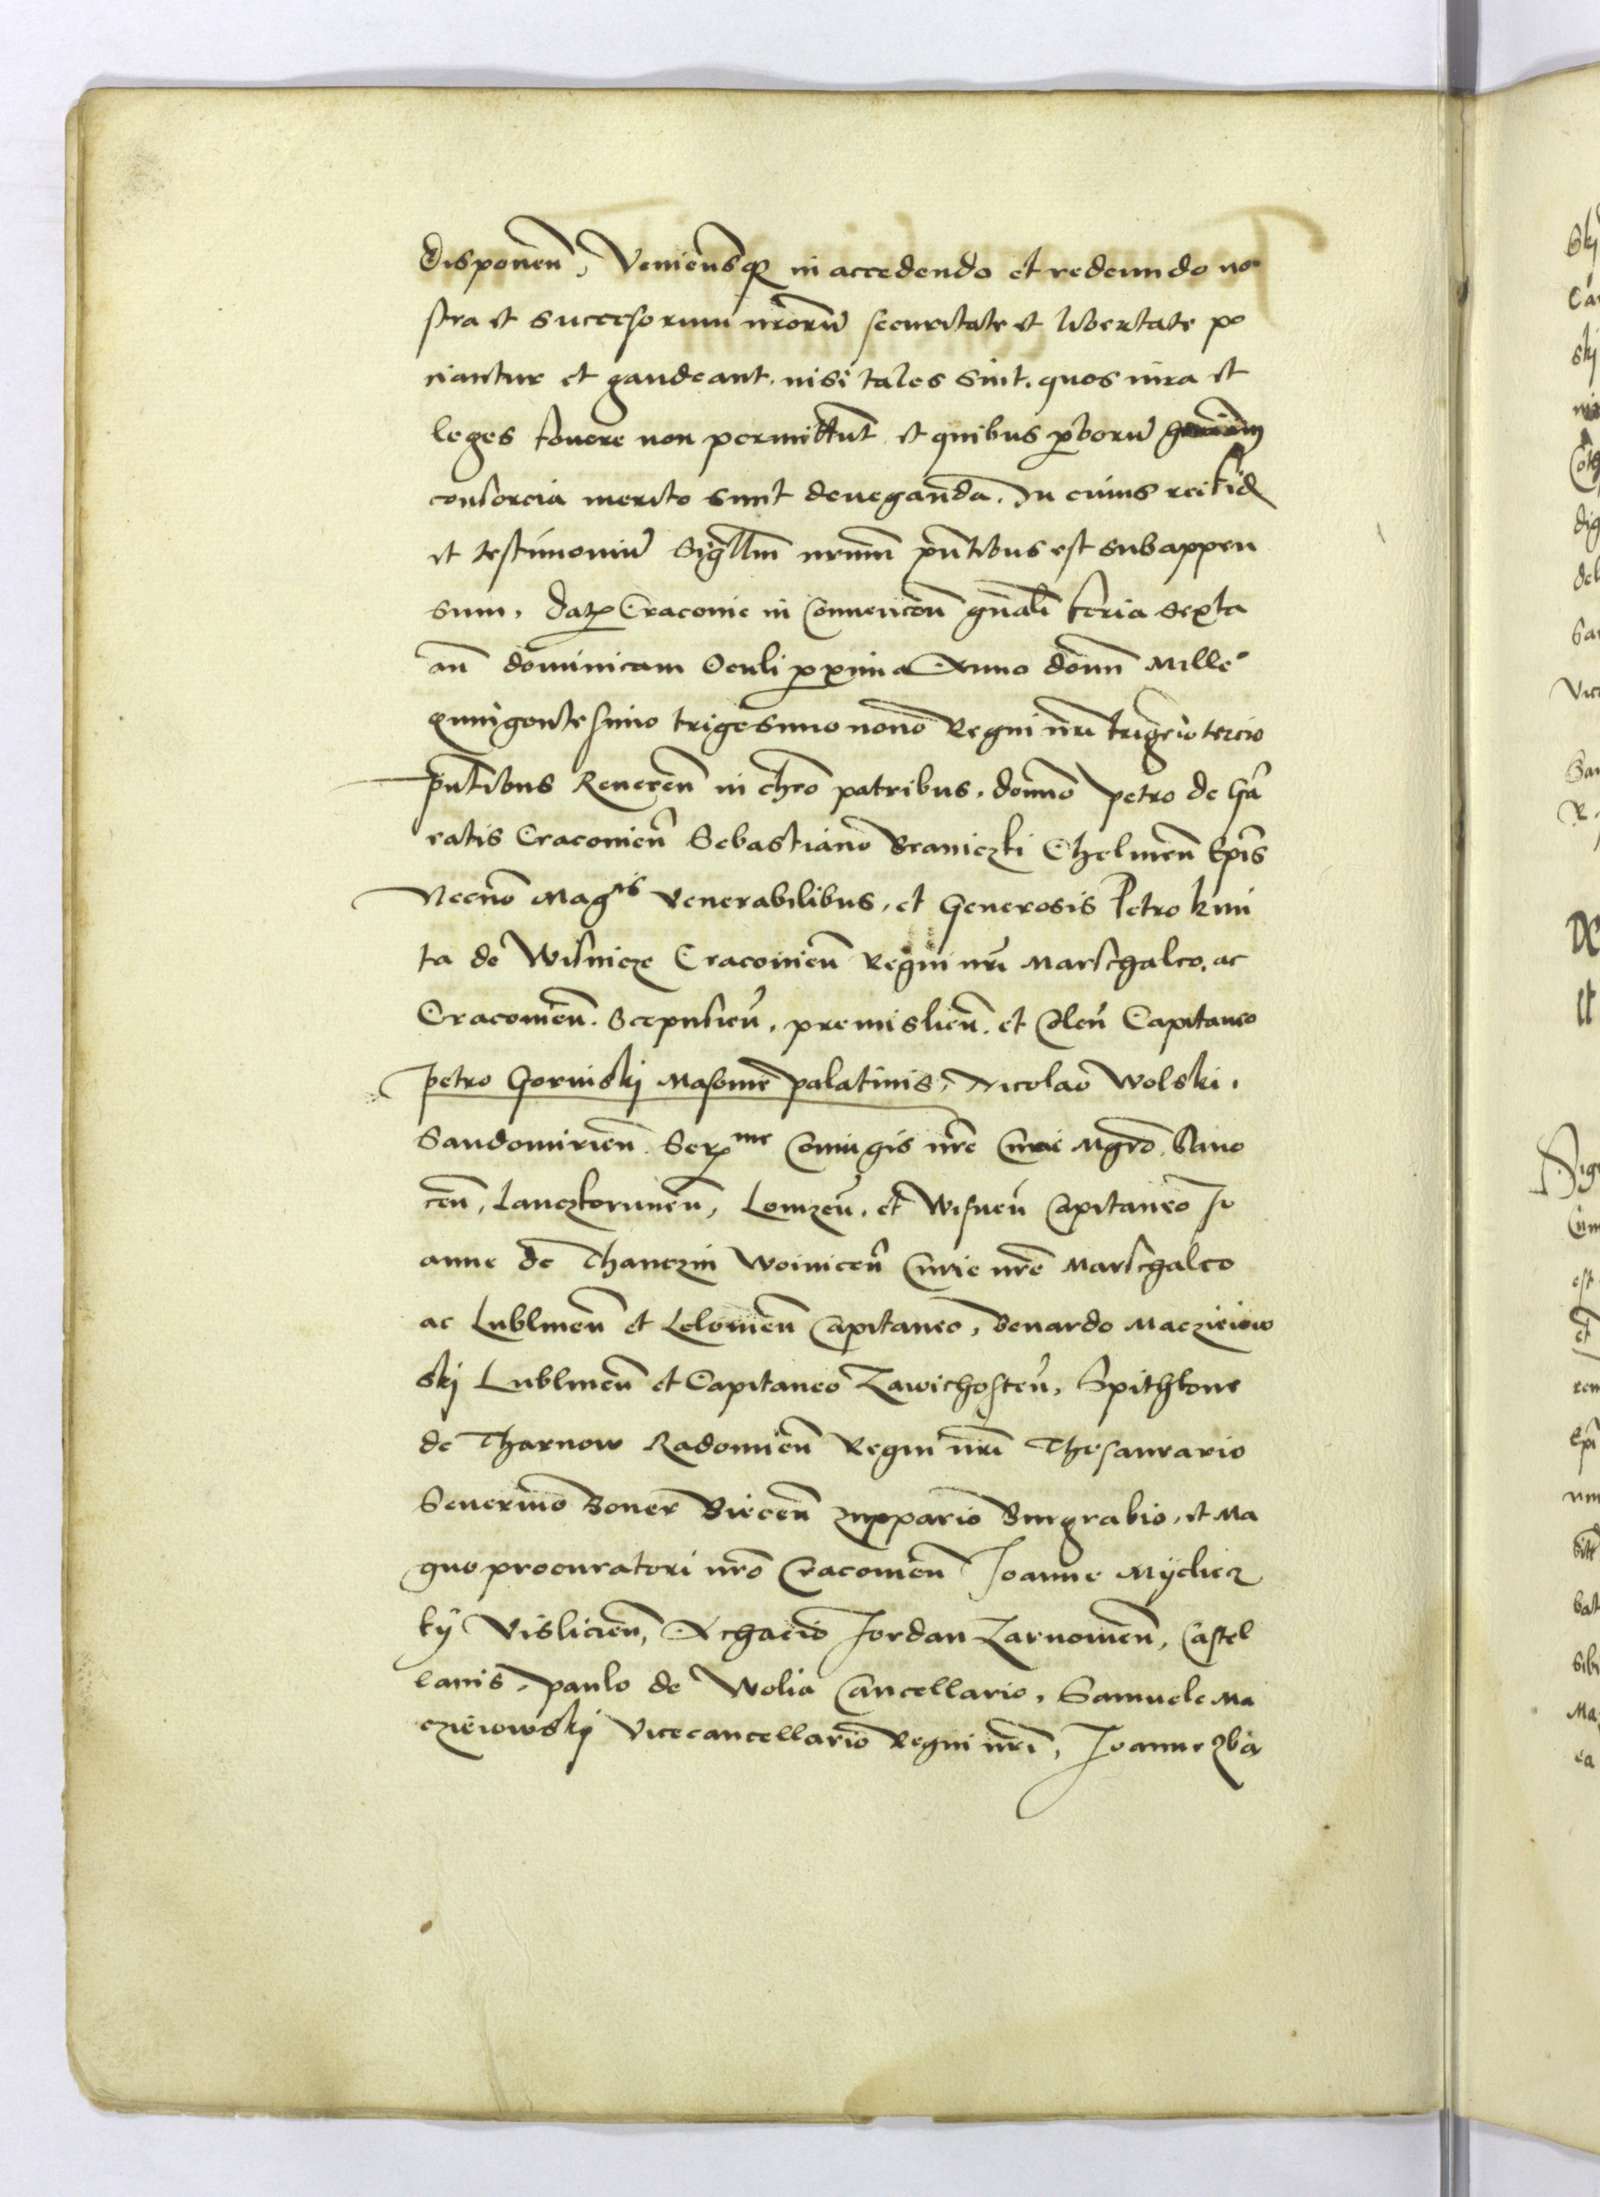 disponeñ, Veniensq in accedendo et redeundo no
stra et succesorum nrorũ securitate et libertate po
ciantur et gaudeant. nisi tales sint. quos iura et
leges fovere non permittunt et quibus pborũ
consorcia merito sunt deneganda. In cuius rei fid
et testimoniũ Sigillm nrum pntibus est subappen
sum. Datx Craconie in Convencõn gnali feria sexta
añ dominicam Oculi pxima Anno domi Mille
quingentesimo trigesimo nono Regni nri trigeio tercio
pntibus Reverẽn in chro patribus. domno petro de Ga
ratis Cracovieñ Sebastiano Braniczki Chelmeñ Epis
Necno Magcis venerabilibus, et Generosis Petro kmi
ta de Wisnicze Cracovieñ Regni nri Marschalco, ac
Cracovieñ. Scepusieñ, premislieñ. et Coleñ Capitaneo
petro Gorinskj Masovie palatinis, Nicolao Wolski,
Sandomirieñ Serxme Coniugis nre Curie Mgro Sano
ceñ, Lanczkoruneñ, Lomzeñ, et Wisneñ Capitaneo Jo
anne de Thanczin Woiniceñ Curie nre Marschalco
ac Lublineñ et Lelovieñ Capitaneo, Benardo Macziejow
skj Lublineñ et Capitaneo Zawichosteñ, Spithkone
de Tharnow Radomieñ Regni nri Thesaurario
Severino Boner Bieceñ zuppario Burgrabio, et Ma
gno procuratori nro Cracovieñ Joanne Myelicz
ky Vislicieñ, Achacio Jordan Zarnovieñ, Castel
lanis, paulo de Wolia Cancellario, Samuele Ma
cziejowskj Vicecancellario Regni nri, Joanne Zba